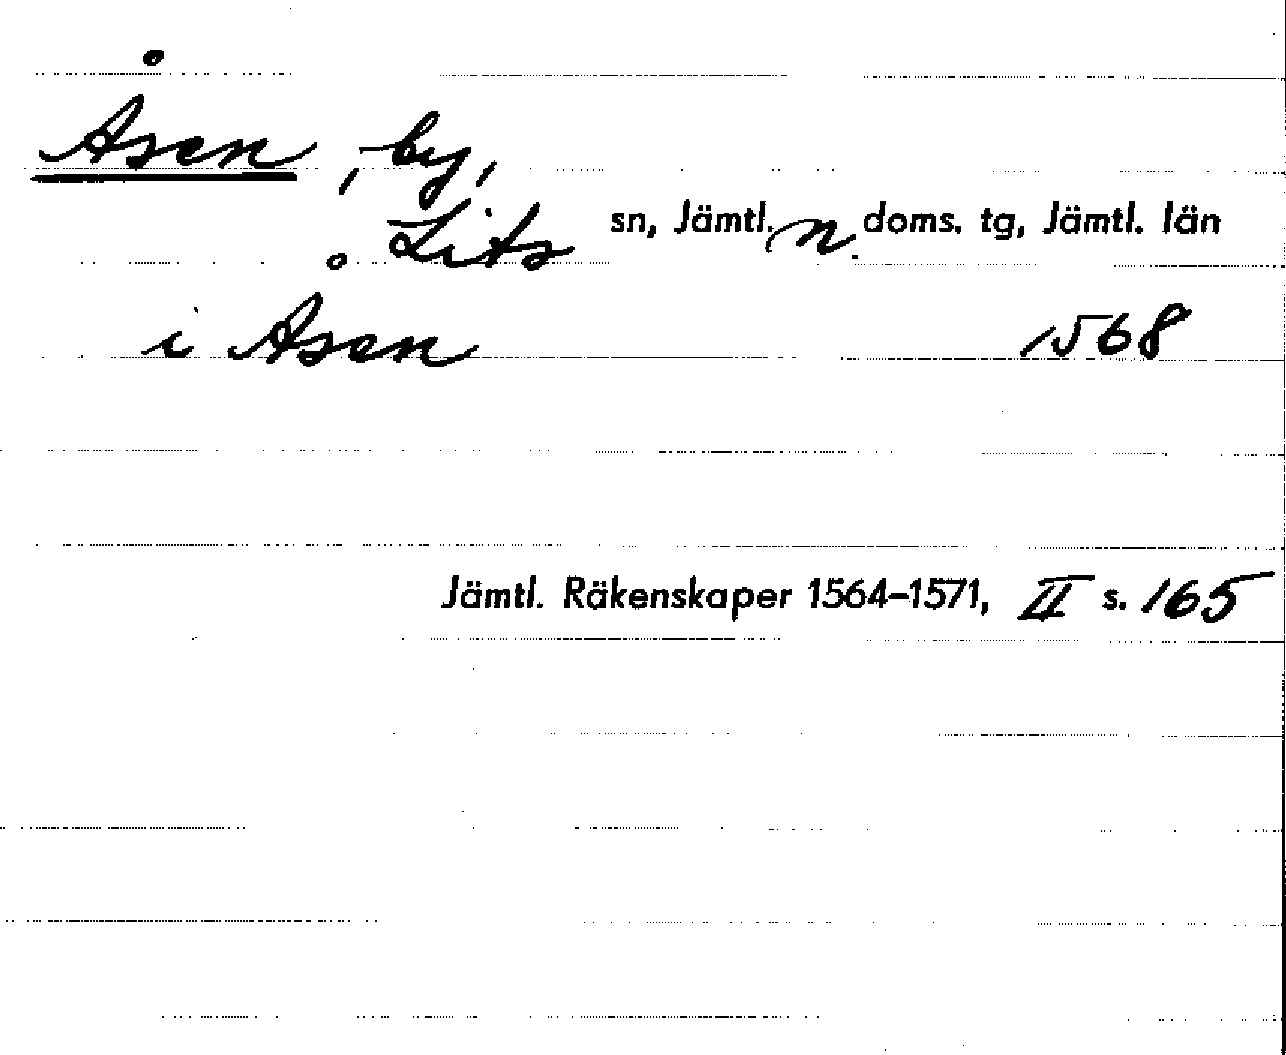 Åsen, by,
Lits sn, Jämtl. n. doms. tg, Jämtl. län
i Åsen 1568
Jämtl. Räkenskaper 1564–1571, II s. 165